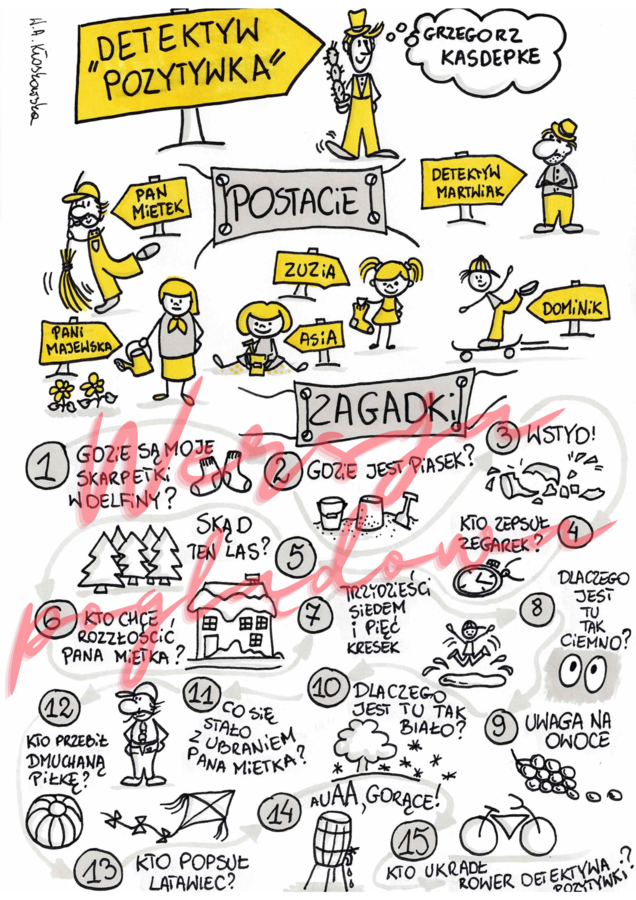 W.A. Kłoskowska
DETEKTYW
"POZYTYWKA"
GRZEGORZ
KASDEPKE
POSTACIE
PAN
MIETEK
DETEKTYW
MARTWIAK
ZUZIA
PANI
MAJEWSKA
ASIA
DOMINIK
ZAGADKI
1 GDZIE SĄ MOJE
SKARPETKI
W DELFINY?
2 GDZIE JEST PIASEK?
3 WSTYD!
KTO ZEPSUŁ 4
ZEGAREK?
SKĄD
TEN LAS? 5
6 KTO CHCE
ROZZŁOŚCIĆ
PANA MIETKA?
7 TRZYDZIEŚCI
SIEDEM
I PIĘĆ
KRESEK
8 DLACZEGO
JEST
TU
TAK
CIEMNO?
9 UWAGA NA
OWOCE
10 DLACZEGO
JEST TU TAK
BIAŁO?
11 CO SIĘ
STAŁO
Z UBRANIEM
PANA MIETKA?
12
KTO PRZEBIŁ
DMUCHANĄ
PIŁKĘ?
13 KTO POPSUŁ
LATAWIEC?
14 AUAA, GORĄCE!
15
KTO UKRADŁ
ROWER DETEKTYWA
POZYTYWKI?
Wersja
poglądowa